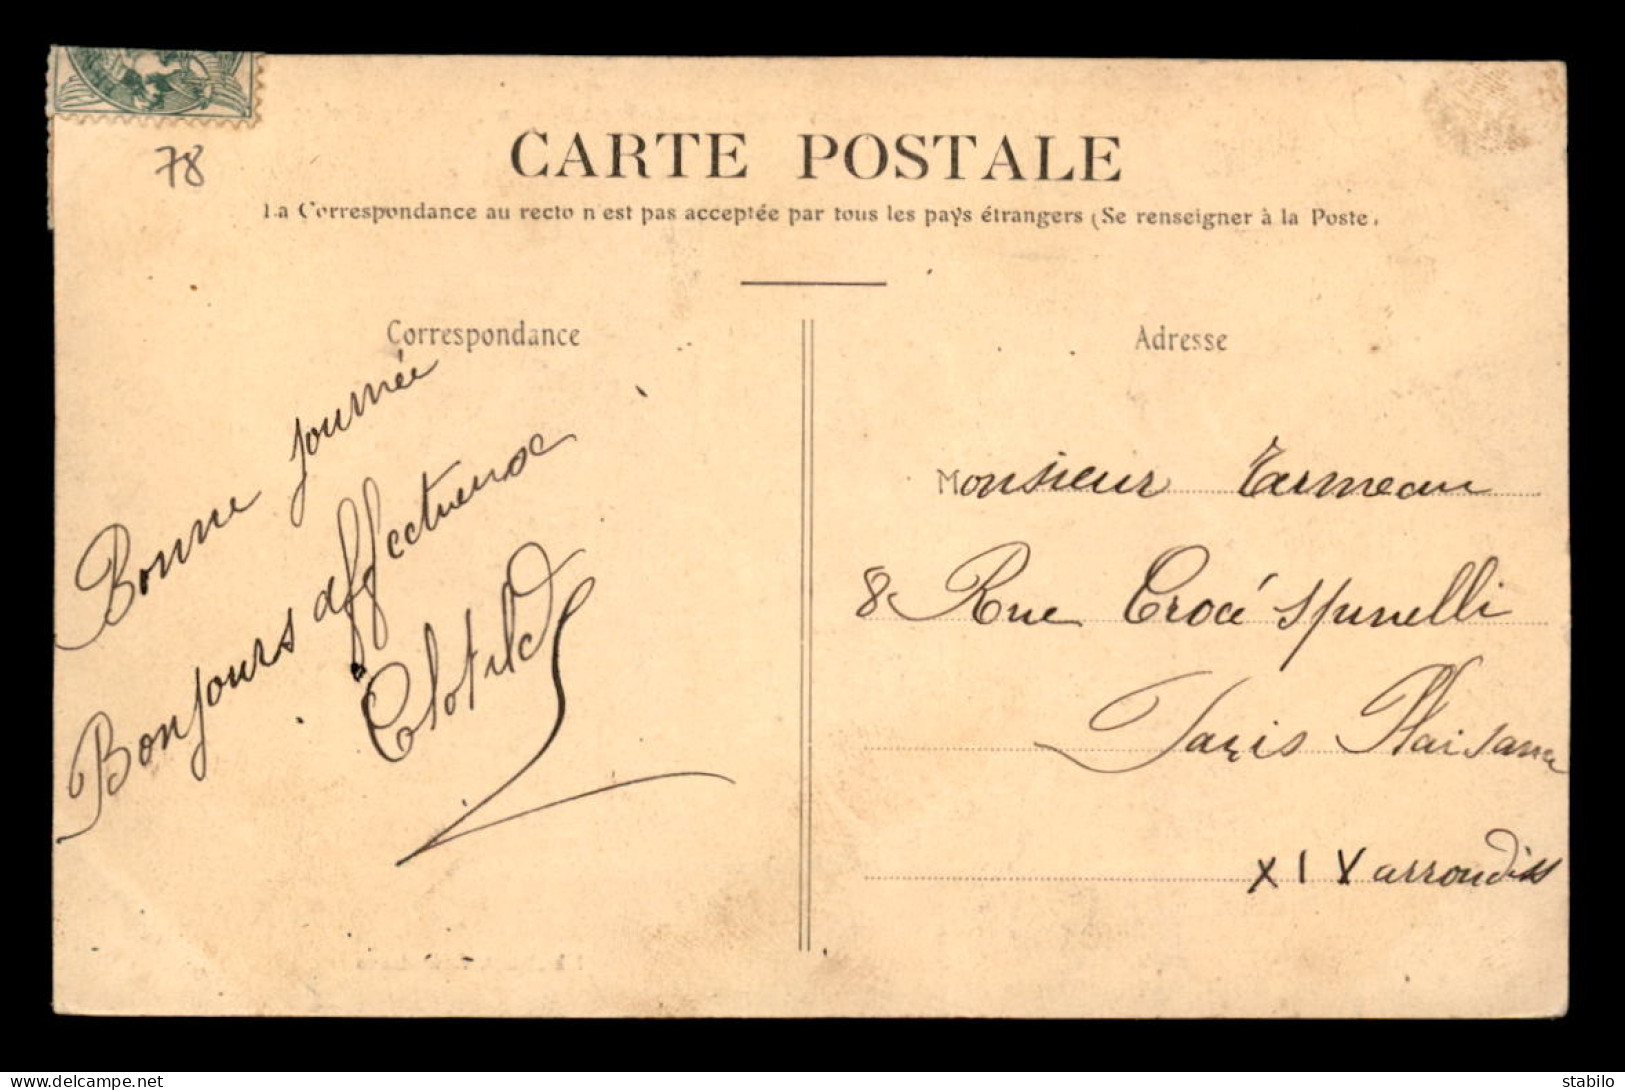 78
CARTE POSTALE
La Correspondance au recto n'est pas acceptée par tous les pays étrangers (Se renseigner à la Poste.
Correspondance
Bonne journée
Bonjours affectueux
Clotilde
Adresse
Monsieur Tarmeau
8 Rue Crocé Spinelli
Paris Plaisance
XIV arrondiss
delcampe.net
stabilo